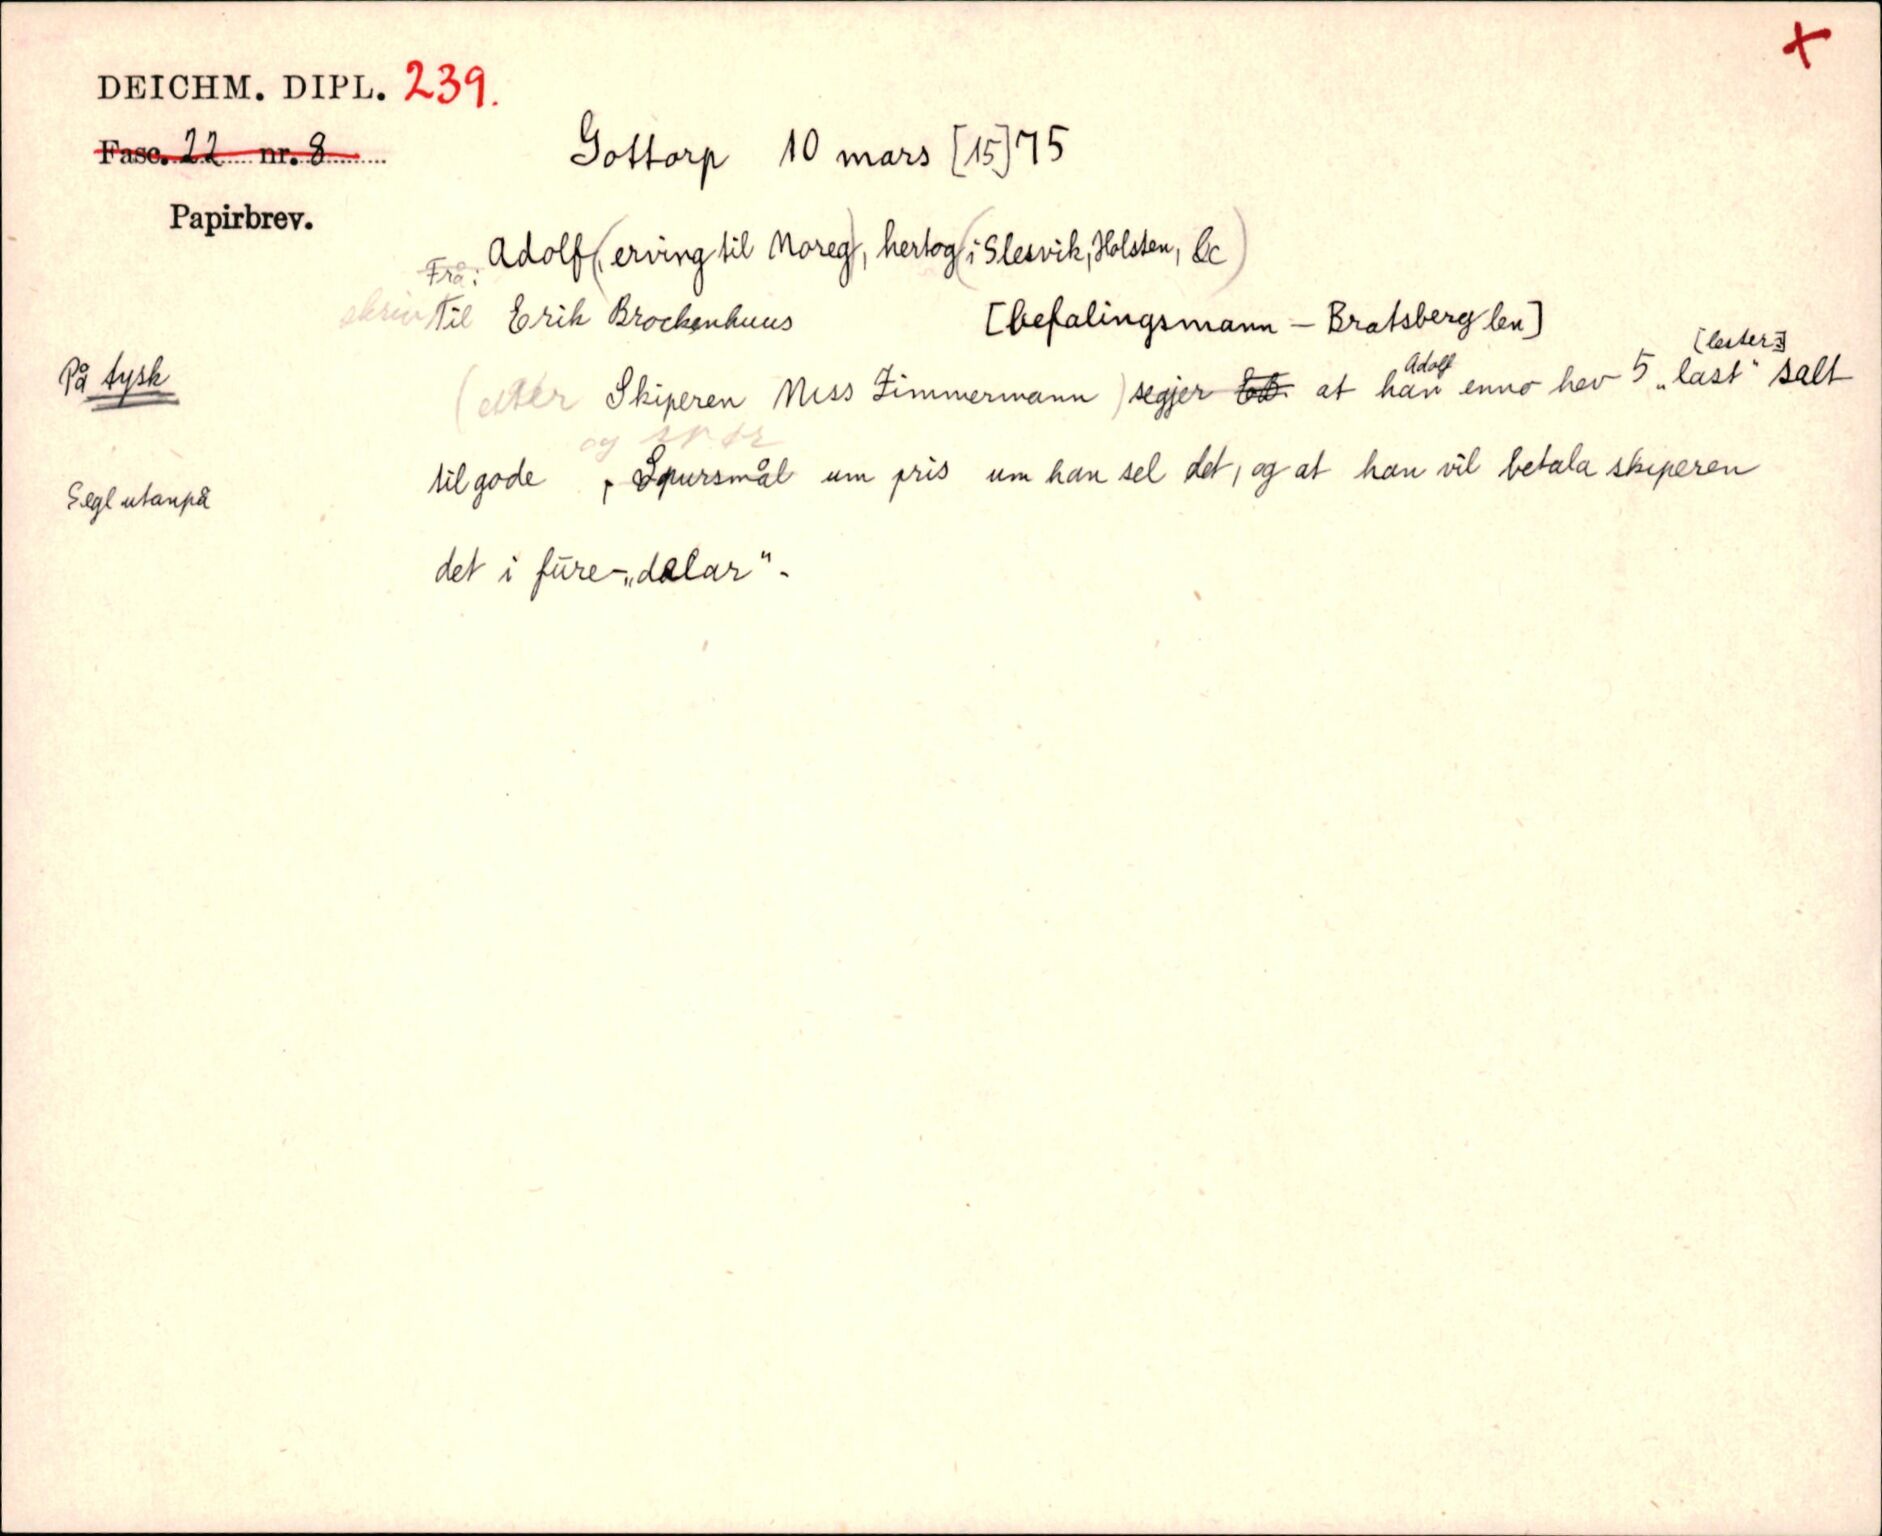 +
DEICHM. DIPL. 239.
Fasc. 22 nr. 8
Gottorp 10 mars [15]75
Papirbrev.
Frå: Adolf (erving til Noreg), hertog (i Slesvik, Holsten, &c)
skriv Til Erik Brockenhuus [befalingsmann – Bratsberg len]
[lester]
Adolf
På tysk
(etter Skiperen Niss Zimmermann) segjer at han enno hev 5 „last" salt
og spør
tilgode, Spursmål um pris um han sel det, og at han vil betala skiperen
Segl utanpå
det i fūre-„dalar".